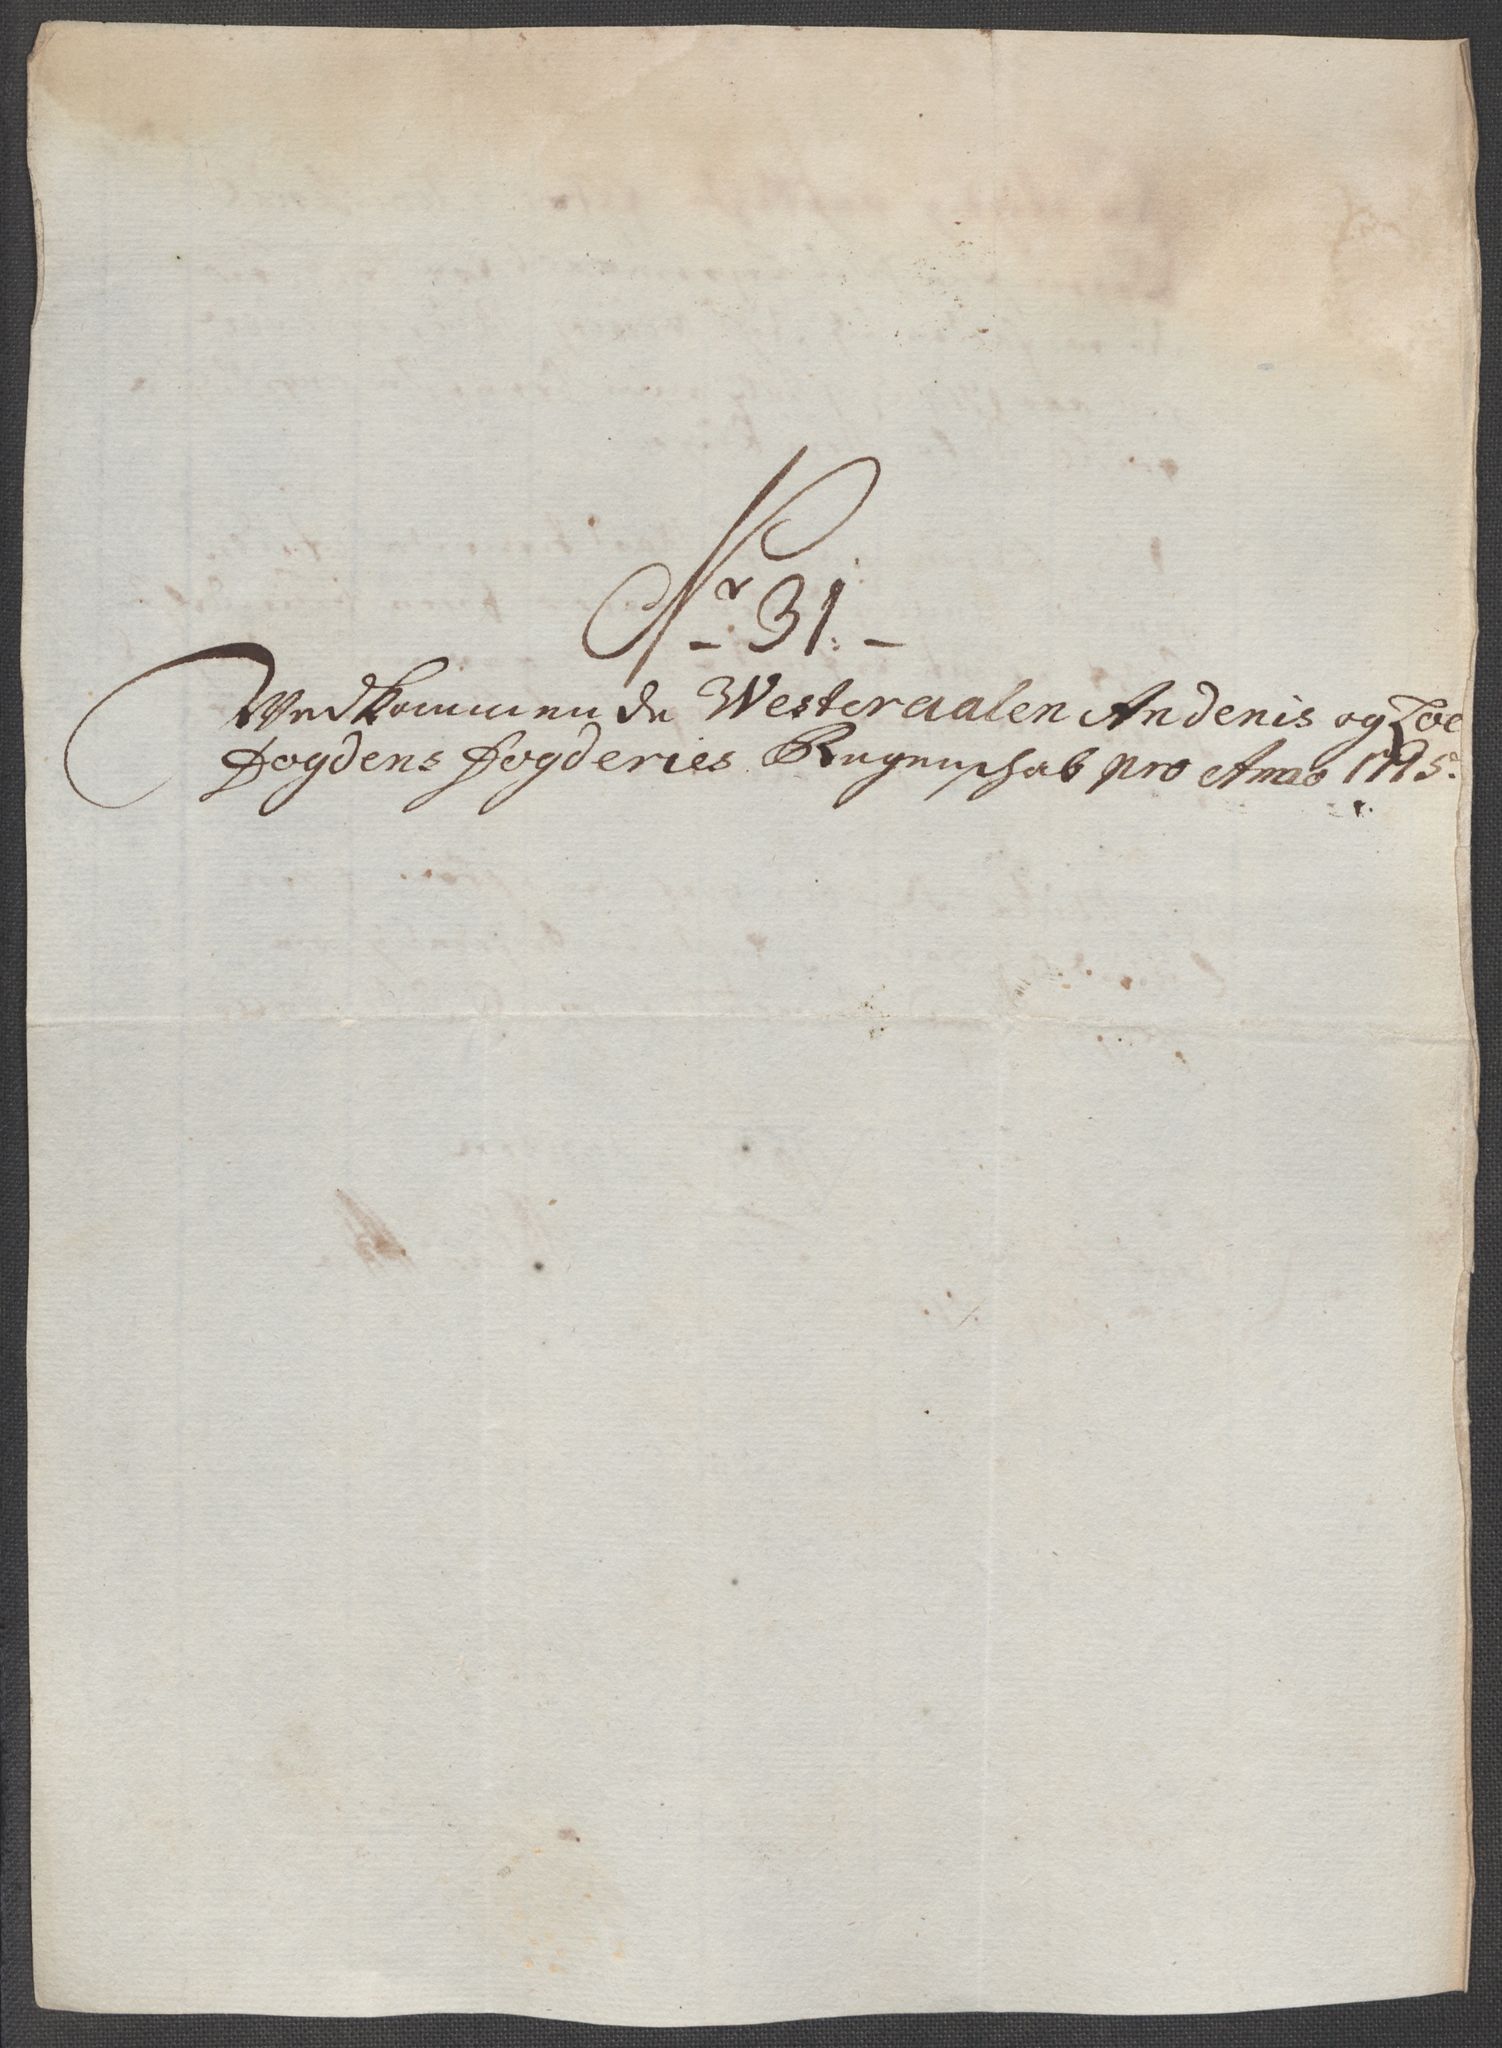 Nr 31.
Vedkommende Westeraalen Andenis og Loe
Fogdens Fogderies Regenschab pro Anno 1715.